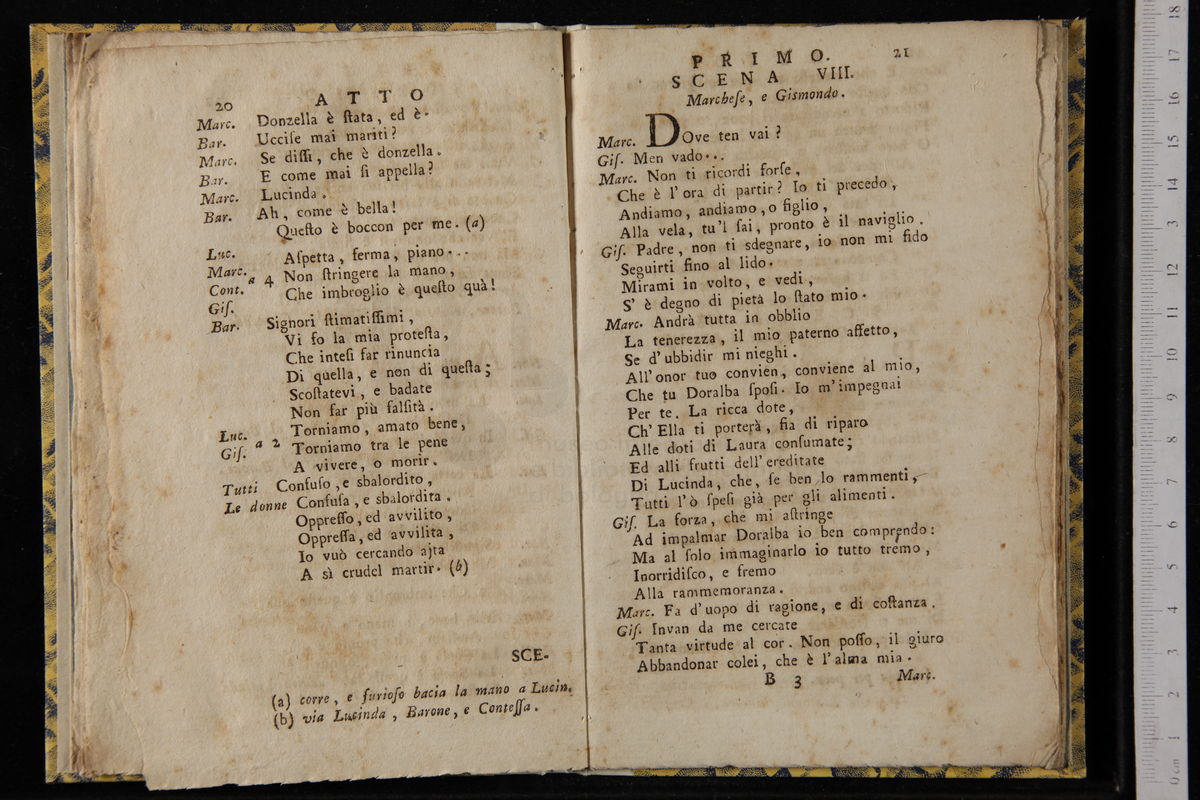 20 ATTO
Marc. Donzella è ſtata, ed è.
Bar. Ucciſe mai mariti?
Marc. Se diſſi, che è donzella.
Bar. E come mai ſi appella?
Marc. Lucinda.
Bar. Ah, come è bella!
Queſto è boccon per me. (a)
Luc. Aſpetta, ferma, piano...
Marc. a 4 Non ſtringere la mano,
Cont. Che imbroglio è queſto quà!
Giſ.
Bar. Signori ſtimatiſſimi,
Vi fo la mia proteſta,
Che inteſi far rinuncia
Di quella, e non di queſta;
Scoſtatevi, e badate
Non far più falſità.
Luc. Torniamo, amato bene,
Giſ. a 2 Torniamo tra le pene
A vivere, o morir.
Tutti Confuſo, e sbalordito,
Le donne Confuſa, e sbalordita.
Oppreſſo, ed avvilito,
Oppreſſa, ed avvilita,
Io vuò cercando ajta
A sì crudel martir. (b)
SCE-
(a) corre, e furioſo bacia la mano a Lucin.
(b) via Lucinda, Barone, e Conteſſa.
PRIMO. 21
SCENA VIII.
Marcheſe, e Gismondo.
Marc. DOve ten vai?
Giſ. Men vado...
Marc. Non ti ricordi forſe,
Che è l'ora di partir? Io ti precedo,
Andiamo, andiamo, o figlio,
Alla vela, tu'l ſai, pronto è il naviglio.
Giſ. Padre, non ti sdegnare, io non mi fido
Seguirti fino al lido.
Mirami in volto, e vedi,
S' è degno di pietà lo ſtato mio.
Marc. Andrà tutta in obblio
La tenerezza, il mio paterno affetto,
Se d'ubbidir mi nieghi.
All'onor tuo convien, conviene al mio,
Che tu Doralba ſpoſi. Io m'impegnai
Per te. La ricca dote,
Ch'Ella ti porterà, fia di riparo
Alle doti di Laura conſumate;
Ed alli frutti dell'ereditate
Di Lucinda, che, ſe ben lo rammenti,
Tutti l'ò ſpeſi già per gli alimenti.
Giſ. La forza, che mi aſtringe
Ad impalmar Doralba io ben comprendo:
Ma al ſolo immaginarlo io tutto tremo,
Inorridiſco, e fremo
Alla rammemoranza.
Marc. Fa d'uopo di ragione, e di coſtanza.
Giſ. Invan da me cercate
Tanta virtude al cor. Non poſſo, il giuro
Abbandonar colei, che è l'alma mia.
B 3 Marc.
18
17
16
15
14
13
12
11
10
9
8
7
6
5
4
3
2
1
0 cm